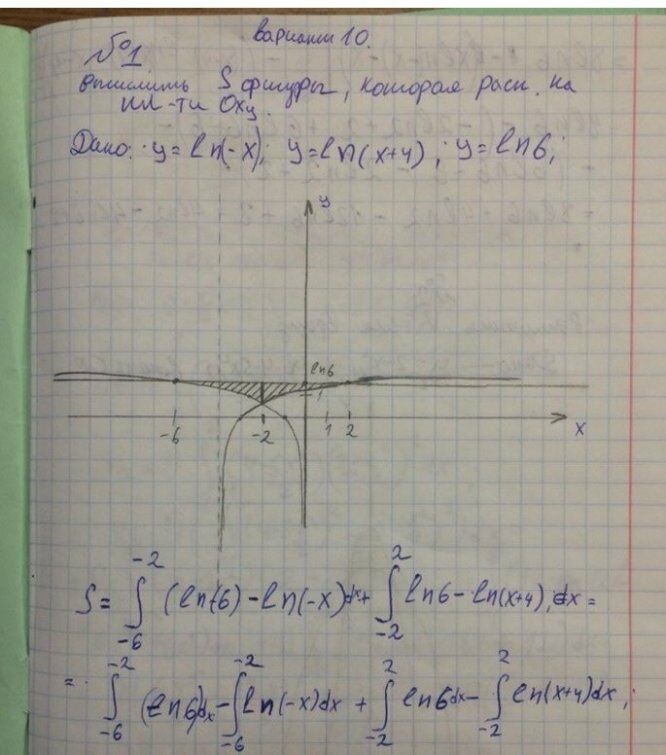 Вариант 10.
№1
Вычислить S фигуры, которая расп. на
пл-ти Oxy
Дано: y = ln(-x); y = ln(x+4); y = ln6;
y
ln6
1
-6 -2 1 2 x
S = ∫_{-6}^{-2} (ln(6) - ln(-x)dx + ∫_{-2}^{2} ln6 - ln(x+4), dx =
= ∫_{-6}^{-2} (ln6)dx - ∫_{-6}^{-2} ln(-x)dx + ∫_{-2}^{2} ln6dx - ∫_{-2}^{2} ln(x+4)dx;